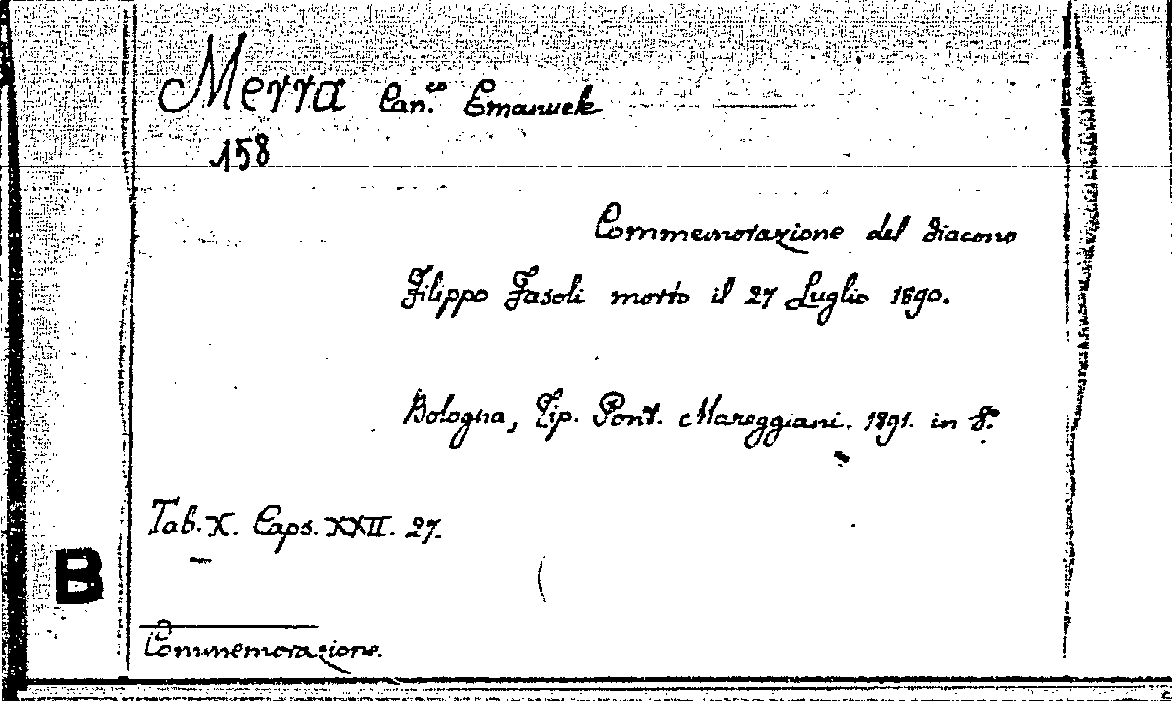 Merra Can.co Emanuele
158
Commemorazione del diacono
Filippo Fasoli morto il 27 Luglio 1890.
Bologna, Tip. Pont. Mareggiani. 1891. in 8.
Tab. X. Caps. XXII. 27.
B
Commemorazione.